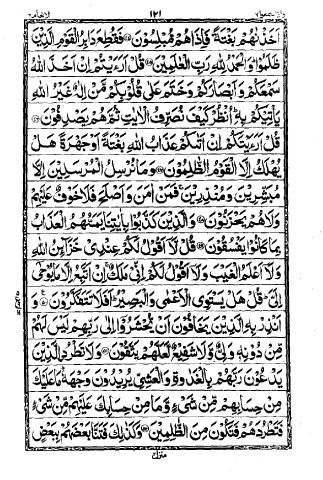 واذا سمعوا ۷ ۱۲۱ الانعام ۶
اَخَذْنٰهُمْ بَغْتَةً فَاِذَا هُمْ مُّبْلِسُوْنَ ۝ فَقُطِعَ دَابِرُ الْقَوْمِ الَّذِيْنَ
ظَلَمُوْا وَالْحَمْدُ لِلّٰهِ رَبِّ الْعٰلَمِيْنَ ۝ قُلْ اَرَءَيْتُمْ اِنْ اَخَذَ اللّٰهُ
سَمْعَكُمْ وَاَبْصَارَكُمْ وَخَتَمَ عَلٰى قُلُوْبِكُمْ مَّنْ اِلٰهٌ غَيْرُ اللّٰهِ
يَاْتِيْكُمْ بِهٖ اُنْظُرْ كَيْفَ نُصَرِّفُ الْاٰيٰتِ ثُمَّ هُمْ يَصْدِفُوْنَ ۝
قُلْ اَرَءَيْتَكُمْ اِنْ اَتٰىكُمْ عَذَابُ اللّٰهِ بَغْتَةً اَوْ جَهْرَةً هَلْ
يُهْلَكُ اِلَّا الْقَوْمُ الظّٰلِمُوْنَ ۝ وَمَا نُرْسِلُ الْمُرْسَلِيْنَ اِلَّا
مُبَشِّرِيْنَ وَمُنْذِرِيْنَ فَمَنْ اٰمَنَ وَاَصْلَحَ فَلَا خَوْفٌ عَلَيْهِمْ
وَلَا هُمْ يَحْزَنُوْنَ ۝ وَالَّذِيْنَ كَذَّبُوْا بِاٰيٰتِنَا يَمَسُّهُمُ الْعَذَابُ
بِمَا كَانُوْا يَفْسُقُوْنَ ۝ قُلْ لَّا اَقُوْلُ لَكُمْ عِنْدِيْ خَزَآئِنُ اللّٰهِ
وَلَا اَعْلَمُ الْغَيْبَ وَلَا اَقُوْلُ لَكُمْ اِنِّيْ مَلَكٌ اِنْ اَتَّبِعُ اِلَّا مَا يُوْحٰى
اِلَيَّ قُلْ هَلْ يَسْتَوِى الْاَعْمٰى وَالْبَصِيْرُ اَفَلَا تَتَفَكَّرُوْنَ ۝ وَ
اَنْذِرْ بِهِ الَّذِيْنَ يَخَافُوْنَ اَنْ يُّحْشَرُوْا اِلٰى رَبِّهِمْ لَيْسَ لَهُمْ
مِّنْ دُوْنِهٖ وَلِيٌّ وَّلَا شَفِيْعٌ لَّعَلَّهُمْ يَتَّقُوْنَ ۝ وَلَا تَطْرُدِ الَّذِيْنَ
يَدْعُوْنَ رَبَّهُمْ بِالْغَدٰوةِ وَالْعَشِيِّ يُرِيْدُوْنَ وَجْهَهٗ مَا عَلَيْكَ
مِنْ حِسَابِهِمْ مِّنْ شَيْءٍ وَّمَا مِنْ حِسَابِكَ عَلَيْهِمْ مِّنْ شَيْءٍ
فَتَطْرُدَهُمْ فَتَكُوْنَ مِنَ الظّٰلِمِيْنَ ۝ وَكَذٰلِكَ فَتَنَّا بَعْضَهُمْ بِبَعْضٍ
منزل